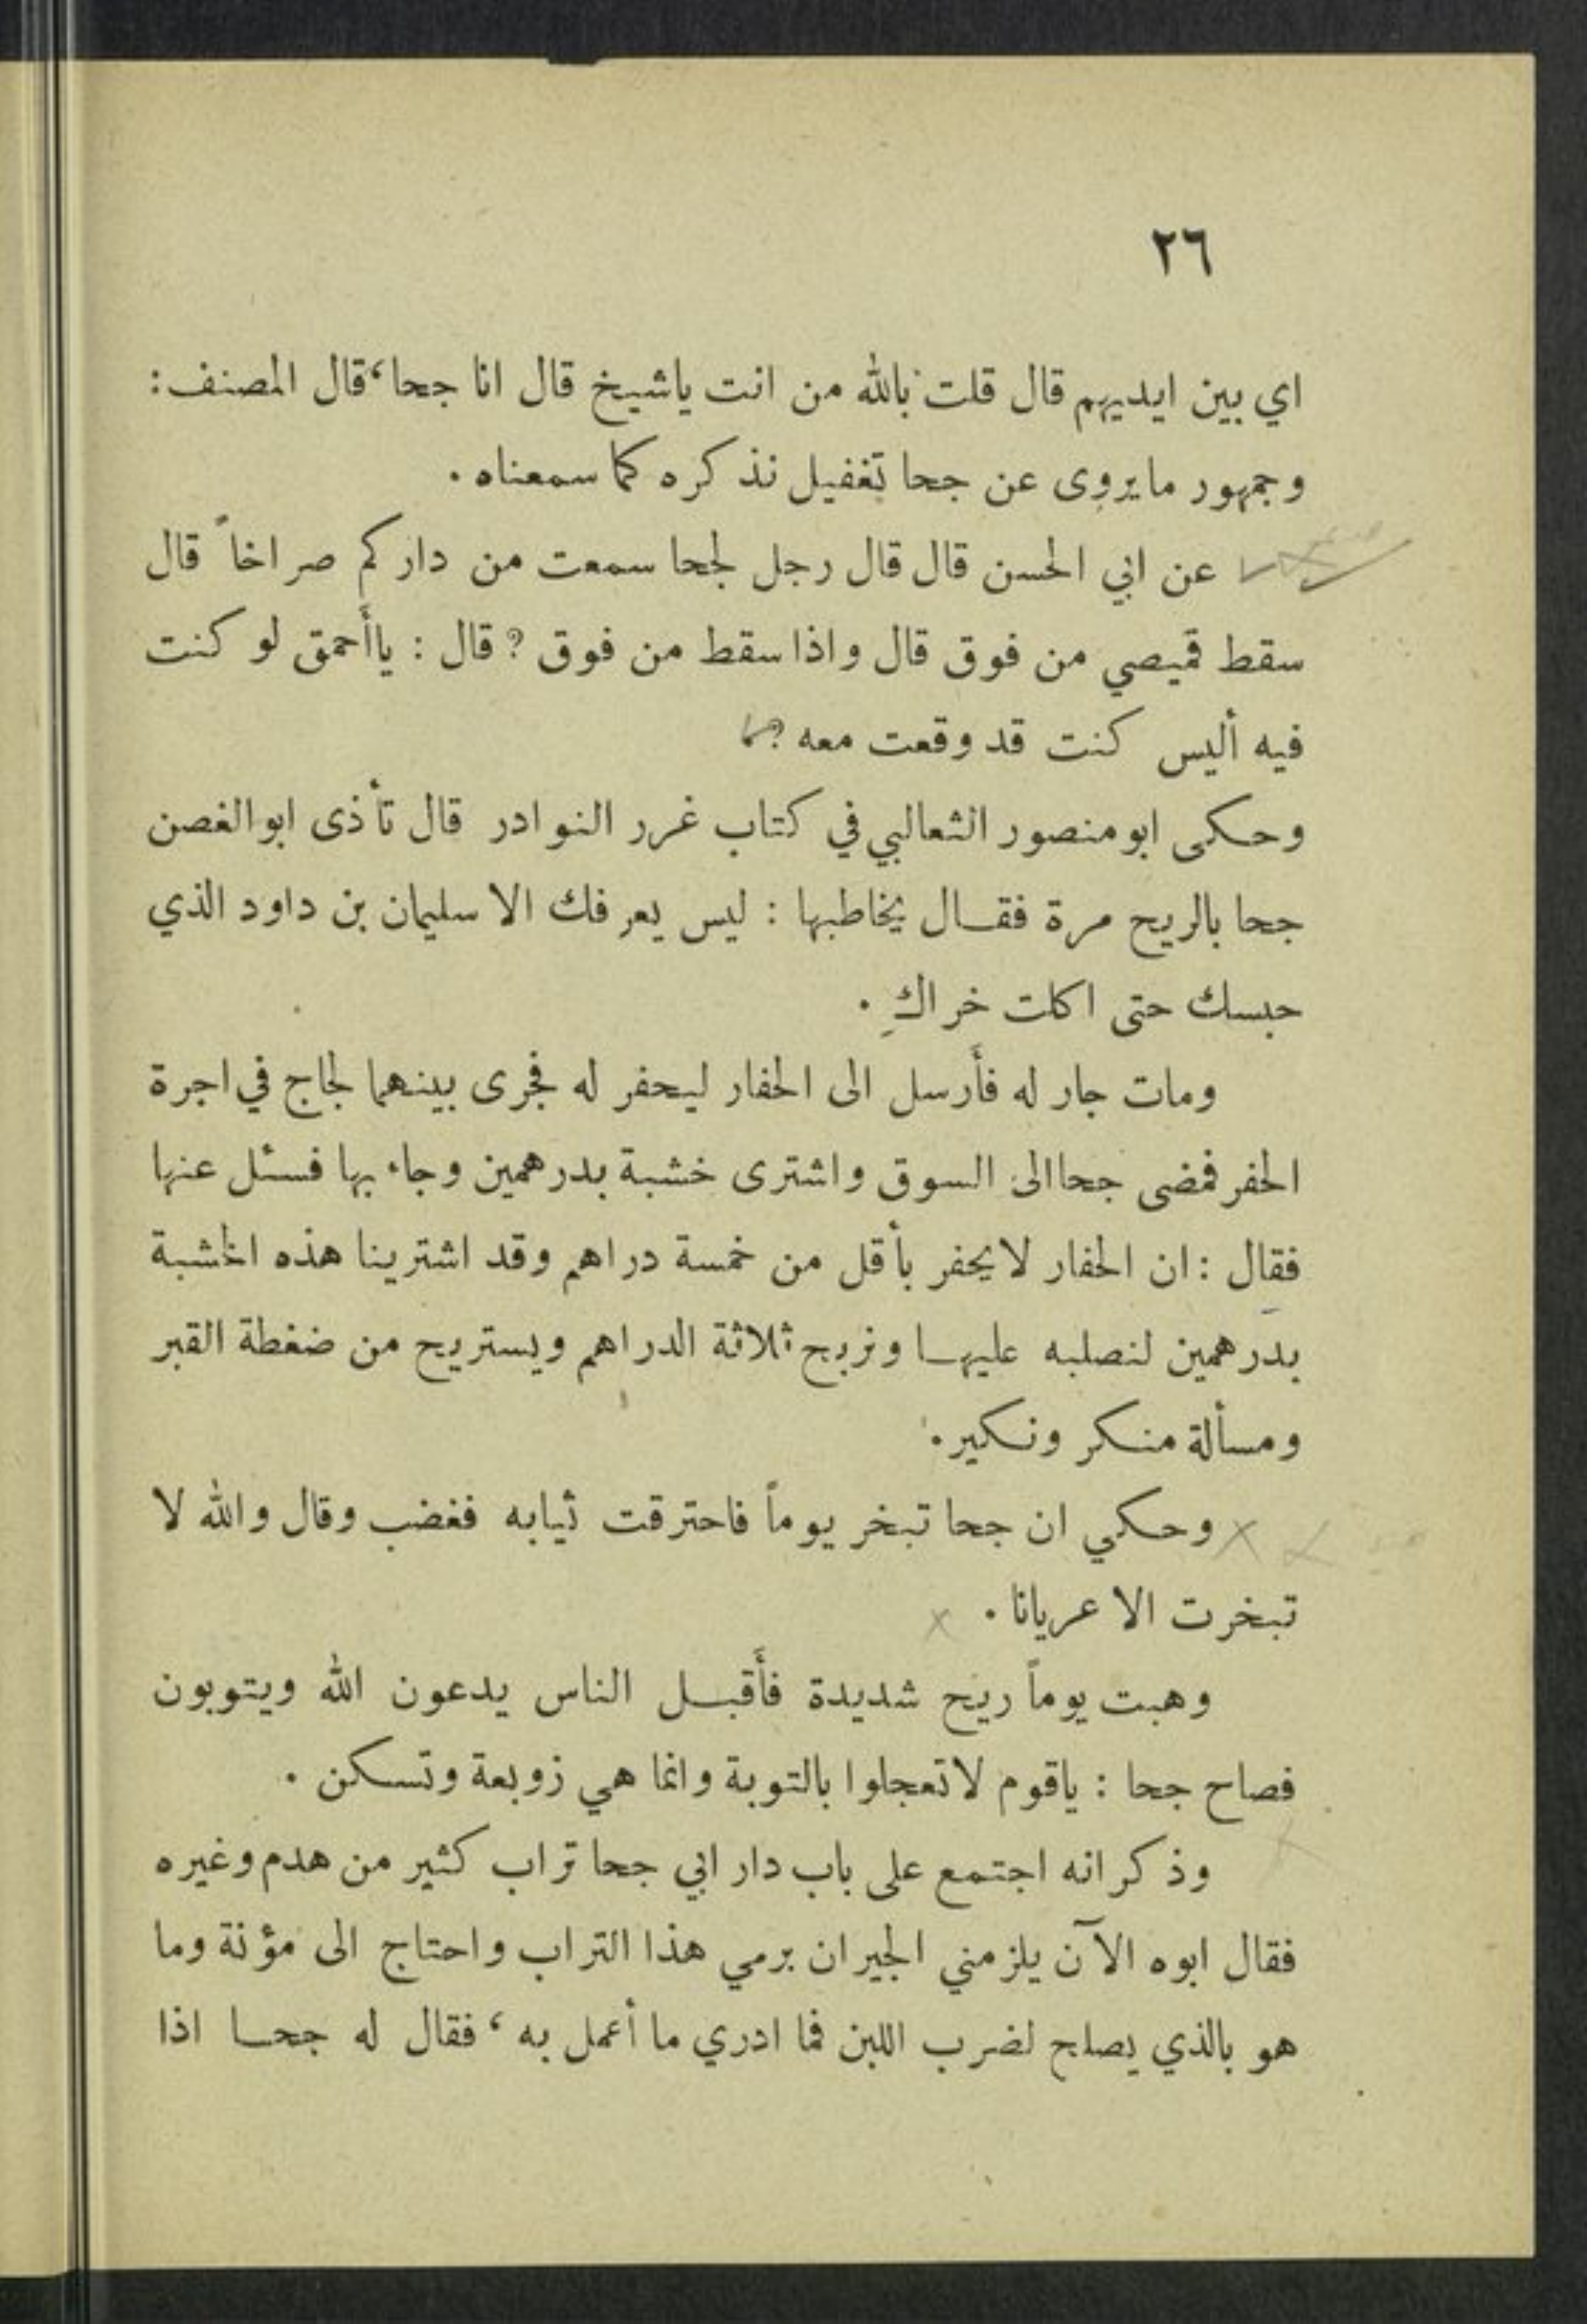 ٢٦
اي بين ايديهم قال قلت بالله من انت ياشيخ قال انا جحا، قال المصنف:
وجمهور ما يروى عن جحا تغفيل نذكره كما سمعناه.
عن ابي الحسن قال قال رجل لجحا سمعت من داركم صراخاً قال
سقط قميصي من فوق قال واذا سقط من فوق؟ قال : ياأَحمق لو كنت
فيه أليس كنت قد وقعت معه؟
وحكى ابو منصور الثعالبي في كتاب غرر النوادر قال تأذى ابو الغصن
جحا بالريح مرة فقال يخاطبها : ليس يعرفك الا سليمان بن داود الذي
حبسك حتى اكلت خراكِ.
ومات جار له فأَرسل الى الحفار ليحفر له فجرى بينهما لجاج في اجرة
الحفر فمضى جحا الى السوق واشترى خشبة بدرهمين وجاء بها فسئل عنها
فقال : ان الحفار لا يحفر بأقل من خمسة دراهم وقد اشترينا هذه الخشبة
بدرهمين لنصلبه عليها ونربح ثلاثة الدراهم ويستريح من ضغطة القبر
ومسألة منكر ونكير.
وحكي ان جحا تبخر يوماً فاحترقت ثيابه فغضب وقال والله لا
تبخرت الا عريانا.
وهبت يوماً ريح شديدة فأَقبل الناس يدعون الله ويتوبون
فصاح جحا : ياقوم لا تعجلوا بالتوبة وانما هي زوبعة وتسكن.
وذكر انه اجتمع على باب دار ابي جحا تراب كثير من هدم وغيره
فقال ابوه الآن يلزمني الجيران برمي هذا التراب واحتاج الى مؤنة وما
هو بالذي يصلح لضرب اللبن فما ادري ما أعمل به، فقال له جحا اذا